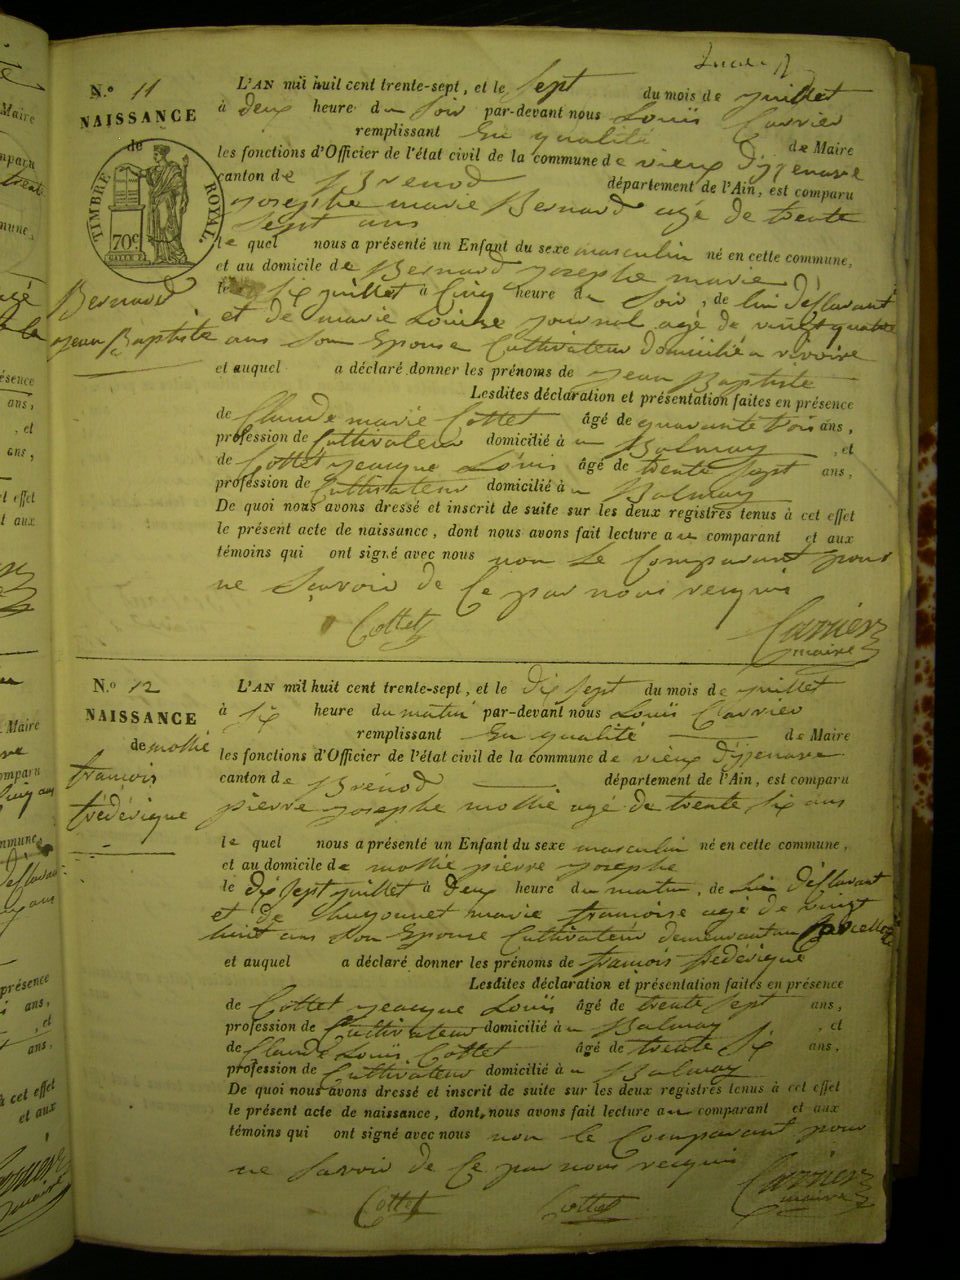 N.º 11
NAISSANCE
de
TIMBRE ROYAL.
70c
Bernard
jean Baptiste
L'AN mil huit cent trente-sept, et le sept du mois de juillet
à deux heure du soir par-devant nous Louïs Carrier
remplissant En qualité de Maire
les fonctions d'Officier de l'état civil de la commune de vieux Dizenave
canton de Brenod département de l'Ain, est comparu
josephe marie Bernard agé de trente
sept ans
le quel nous a présenté un Enfant du sexe masculin né en cette commune,
et au domicile de Bernard josephe marie
le six juillet à Cinq heure du soir, de lui Déclarant
et de marie Louise journal agé de vingt quatre
ans son Epouse Cultivateur domicilié a
et auquel a déclaré donner les prénoms de jean Baptiste
Lesdites déclaration et présentation faites en présence
de Claude marie Cottet âgé de quarante trois ans,
profession de Cultivateur domicilié à u Balmay, et
de Cottet jeacque Louis âgé de trente sept ans,
profession de Cultivateur domicilié à u Balmay
De quoi nous avons dressé et inscrit de suite sur les deux registres tenus à cet effet
le présent acte de naissance, dont nous avons fait lecture au comparant et aux
témoins qui ont signé avec nous non Le Comparant pour
ne savoir de Ce par nous requis
Cottet
Carrier
maire
N.º 12
NAISSANCE
de mollie
francois
frédérique
L'AN mil huit cent trente-sept, et le dix sept du mois de juillet
à six heure du matin par-devant nous Louïs Carrier
remplissant En qualité de Maire
les fonctions d'Officier de l'état civil de la commune de vieux Dizenave
canton de Brénod département de l'Ain, est comparu
pierre josephe mollie agé de trente six ans
le quel nous a présenté un Enfant du sexe masculin né en cette commune,
et au domicile de mollie pierre josephe
le dix sept juillet à deux heure du matin, de lui Déclarant
et de marie francoise agé de vingt
huit ans son Epouse Cultivateur demeurant au
et auquel a déclaré donner les prénoms de francois frédérique
Lesdites déclaration et présentation faites en présence
de Cottet jeacque Louïs âgé de trente sept ans,
profession de Cultivateur domicilié à u Balmay, et
de Claude Louïs Cottet âgé de trente six ans,
profession de Cultivateur domicilié à u Balmay
De quoi nous avons dressé et inscrit de suite sur les deux registres tenus à cet effet
le présent acte de naissance, dont nous avons fait lecture au comparant et aux
témoins qui ont signé avec nous non le Comparant pour
ne savoir de Ce par nous requis
Cottet
Cottet
Carrier
maire